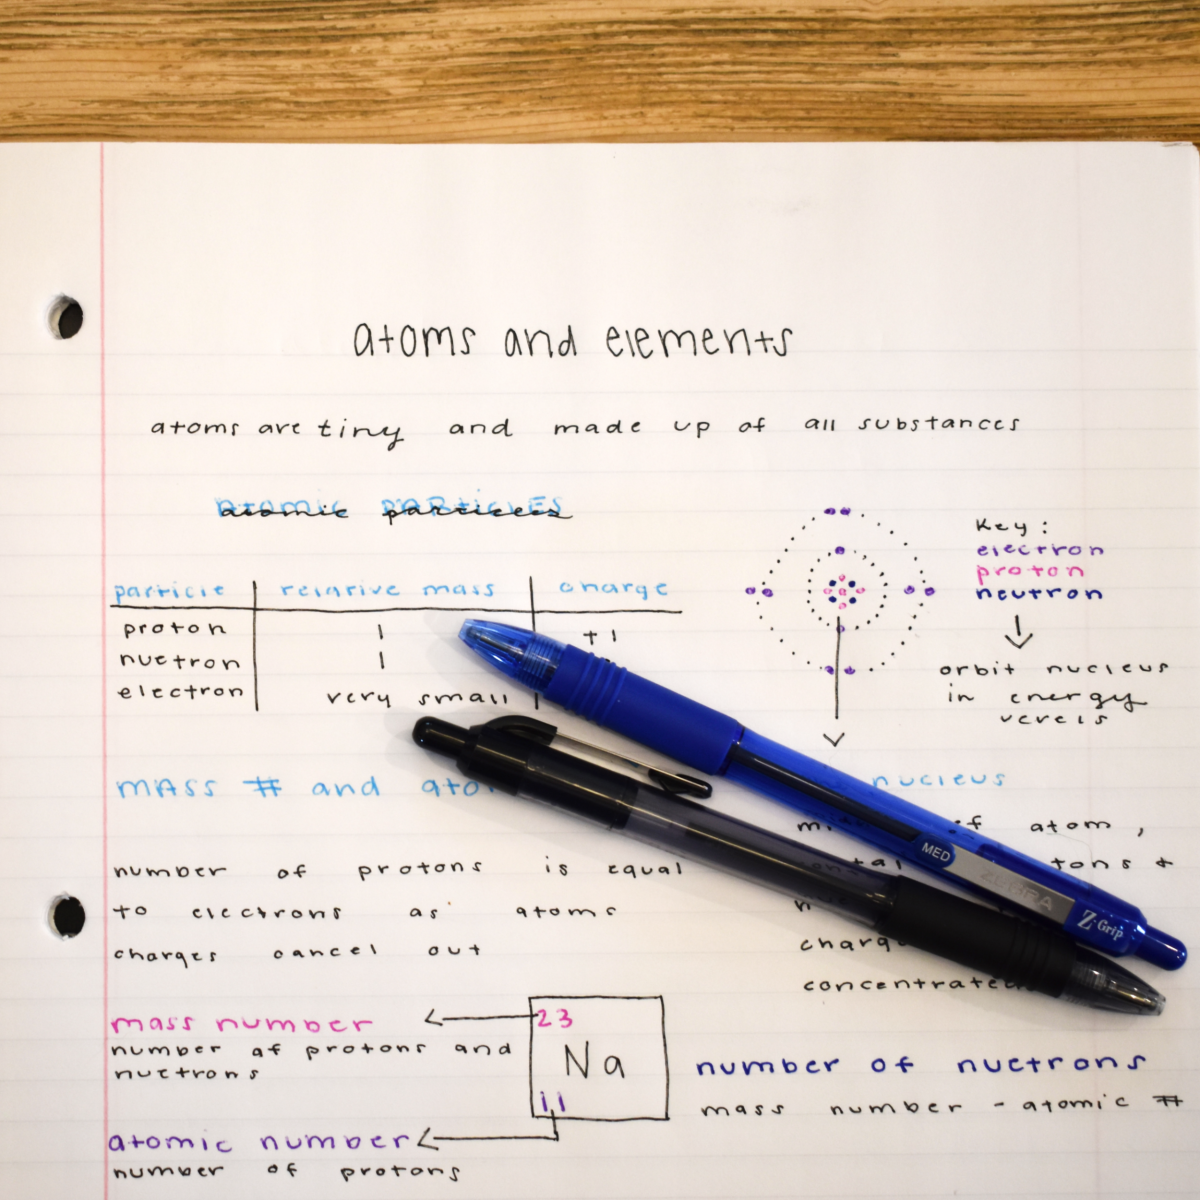 atoms and elements
atoms are tiny and made up of all substances
atomic particles
particle relative mass charge
proton 1 +1
nuetron 1
electron very small
Key:
electron
proton
neutron
orbit nucleus
in energy
nucleus
of atom,
charge
concentrated
mass # and
number of protons is equal
to electrons as atoms
charges cancel out
mass number
number of protons and
nuetrons
23
Na
11
atomic number
number of protons
number of nuetrons
mass number - atomic #
MED
ZEBRA
Z-Grip